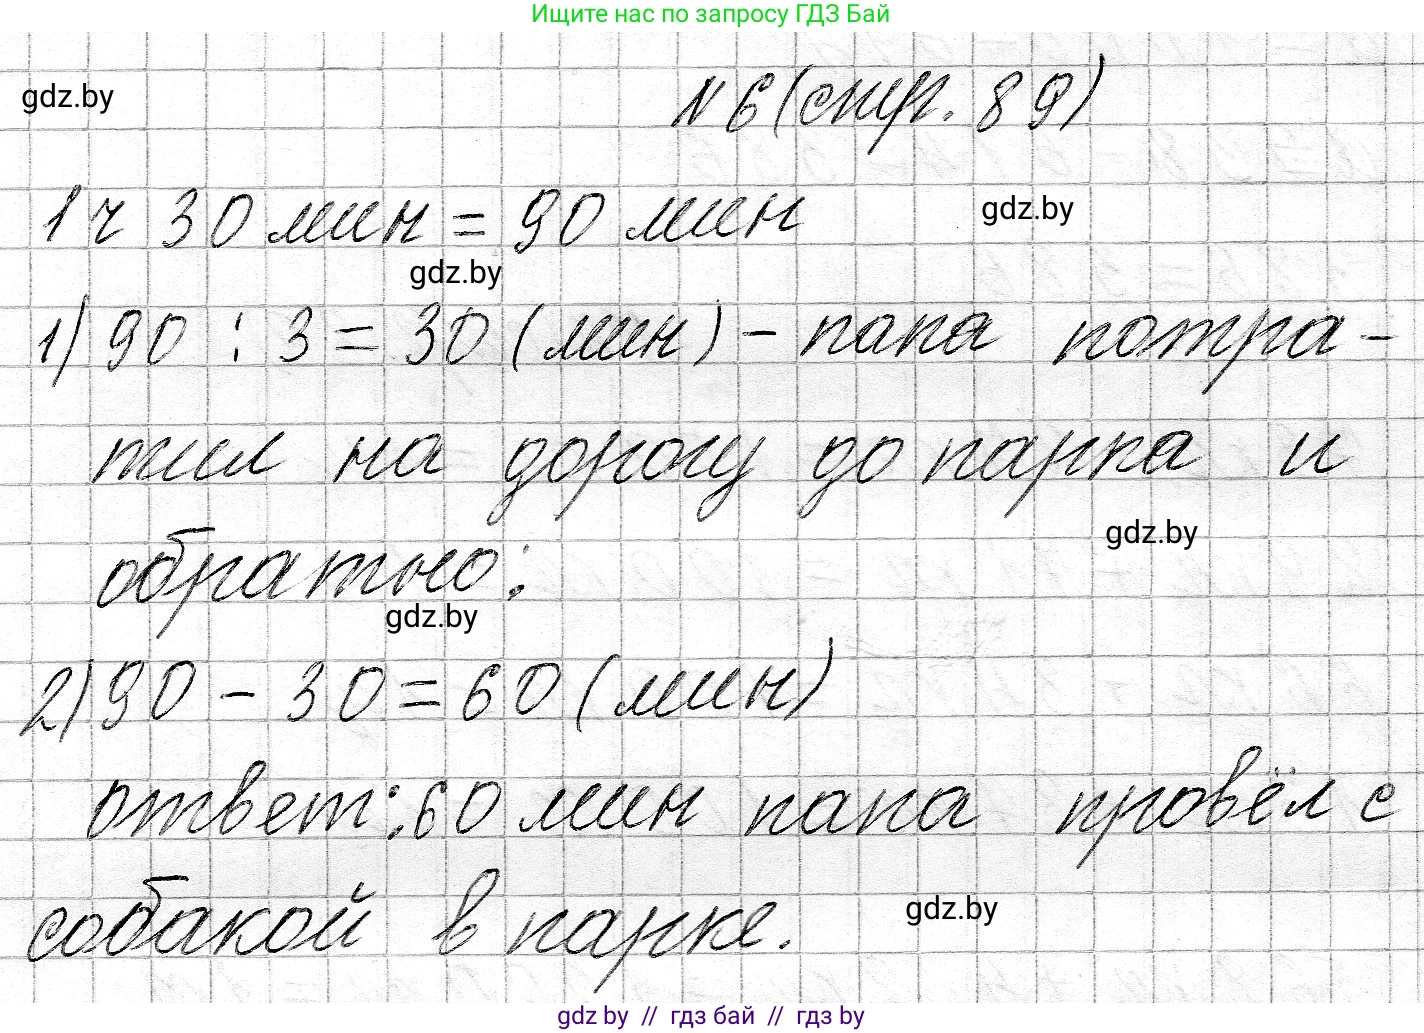 Ищите нас по запросу ГДЗ Бай
gdz.by
N 6 (стр. 89)
1 ч 30 мин = 90 мин
gdz.by
gdz.by
1) 90 : 3 = 30 (мин) - папа потра-
тил на дорогу до парка и
gdz.by
обратно;
gdz.by
2) 90 - 30 = 60 (мин)
ответ: 60 мин папа провёл с
собакой в парке.
gdz.by
gdz.by // гдз бай // гдз by